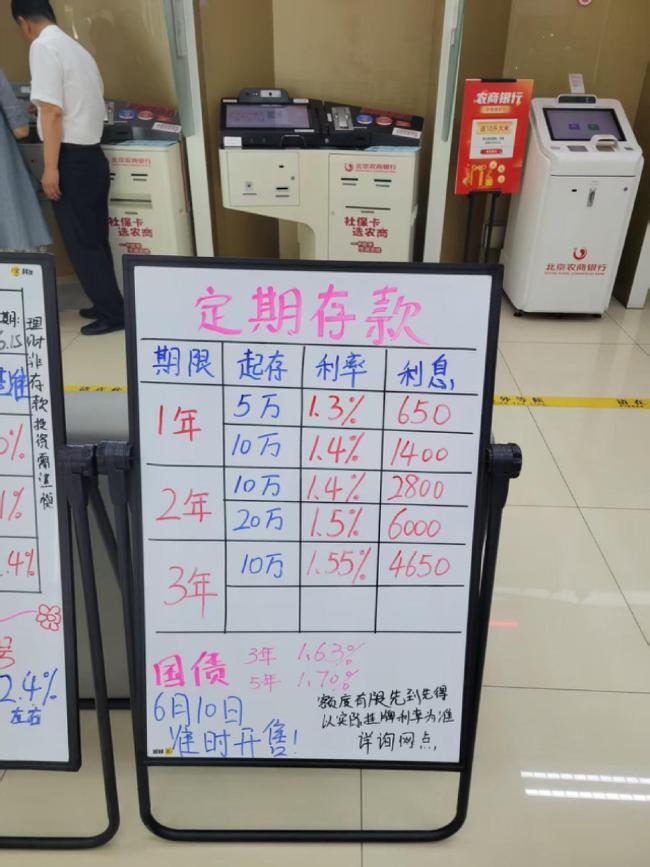 北京农商银行
社保卡
选农商
北京农商银行
社保卡
选农商
农商银行
北京农商银行
理财非存款投资需谨慎
2.4%
左右
定期存款
期限 起存 利率 利息
1年 5万 1.3% 650
10万 1.4% 1400
2年 10万 1.4% 2800
20万 1.5% 6000
3年 10万 1.55% 4650
国债 3年 1.63%
5年 1.70%
6月10日
准时开售!
额度有限先到先得
以实际挂牌利率为准
详询网点